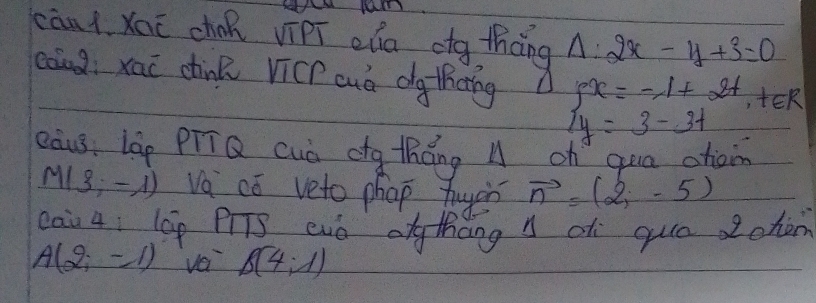 câu1. Xác định VTPT của đtg thẳng Δ: 2x - y + 3 = 0
câu2: xác định VTCP của đg thẳng Δ {x = -1 + 2t, t∈R
{y = 3 - 3t
câu3: lập PTTQ của đtg thẳng Δ đi qua điểm
M(3; -1) và có vetơ pháp tuyến n⃗ = (2; -5)
câu 4: lập PTTS của đtg thẳng Δ đi qua 2 điểm
A(2; -1) và B(4; 1)